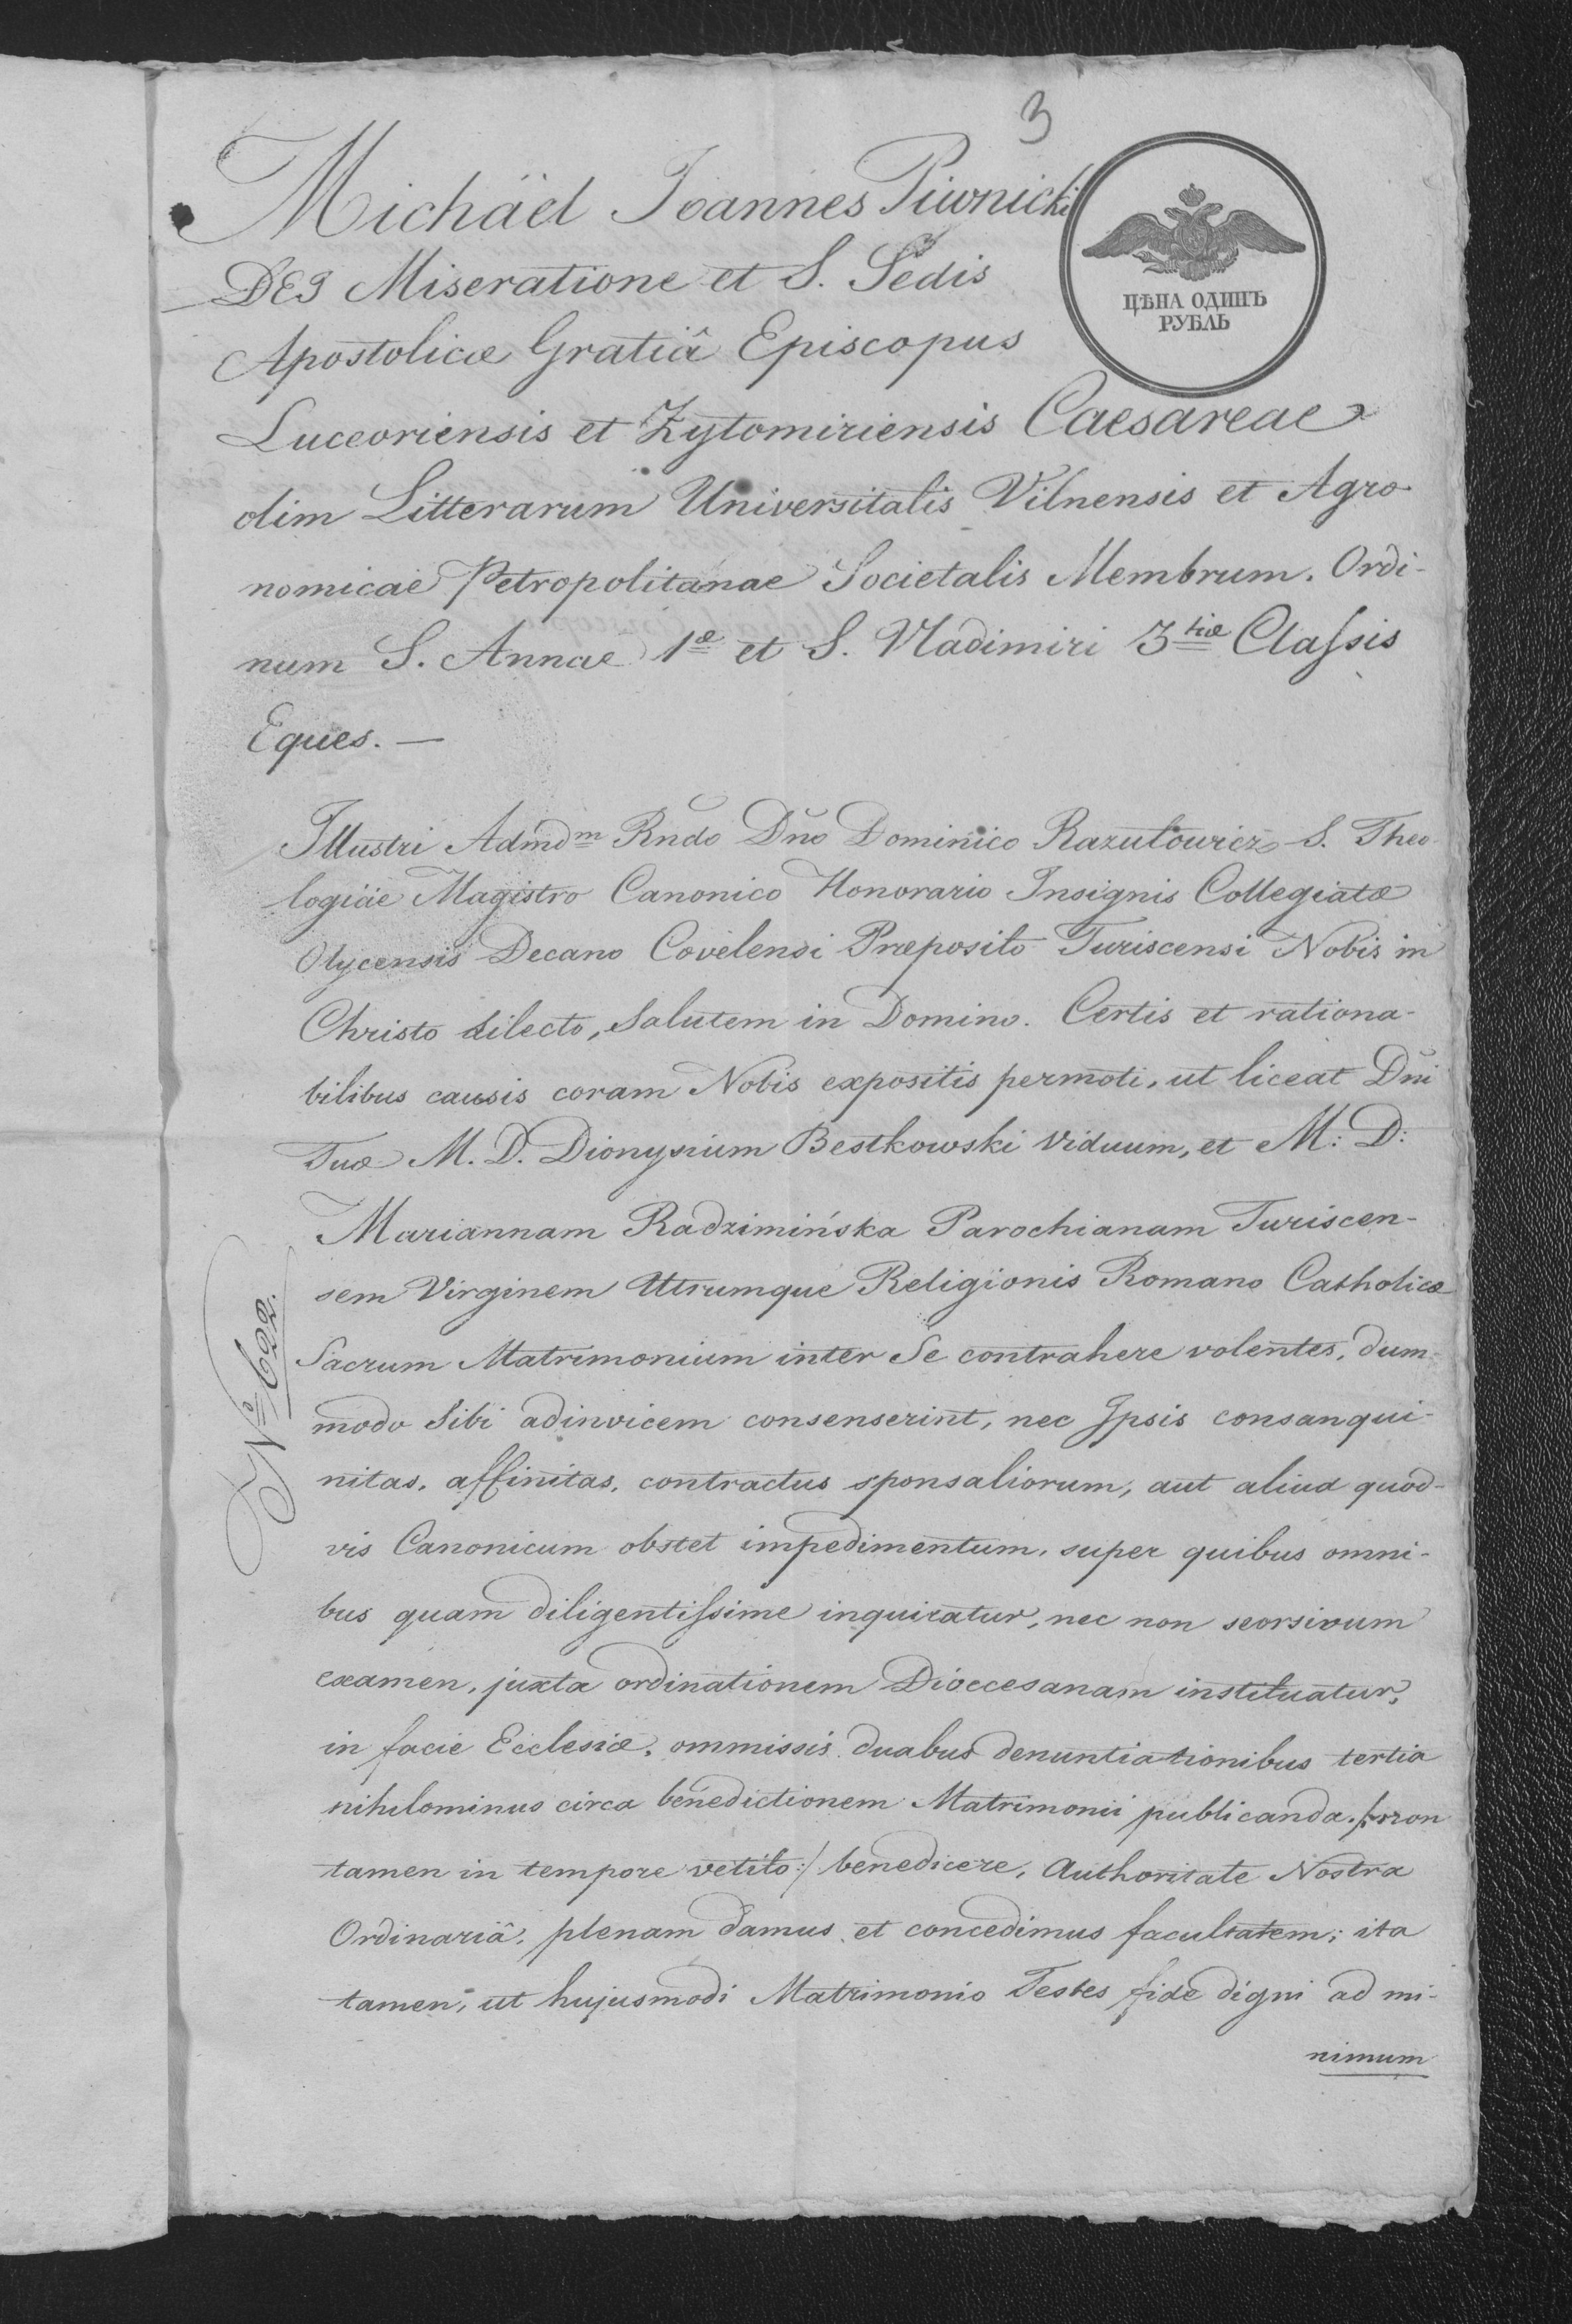 3
Michäel Joannes Piwnicki
DEJ Miseratione et S. Sedis
Apostolicæ Gratiâ Episcopus
ЦѢНА ОДИНЪ
РУБЛЬ
Luceoriensis et Zytomiriensis Caesareae
olim Litterarum Universitatis Vilnensis et Agro-
nomicae Petropolitanae Societatis Membrum. Ordi-
num S. Annae 1æ et S. Vladimiri 3tiæ Classis
Eques. —
Illustri Admdm Rndo Dno Dominico Razutowicz S. Theo-
logiae Magistro Canonico Honorario Insignis Collegiatæ
Olycensis Decano Covelensi Præposito Turiscensi Nobis in
Christo dilecto, Salutem in Domino. Certis et rationa-
bilibus causis coram Nobis expositis permoti, ut liceat Dni
Tuæ M. D. Dionysium Bestkowski Viduum, et M: D:
Mariannam Radzimińska Parochianam Turiscen-
sem Virginem Utrumque Religionis Romano Catholicæ
Sacrum Matrimonium inter Se contrahere volentes, dum-
modo Sibi adinvicem consenserint, nec Jpsis consanqui-
nitas, affinitas, contractus sponsaliorum, aut aliud quod-
vis Canonicum obstet impedimentum, super quibus omni-
bus quam diligentissime inquiratur, nec non seorsivum
examen, juxta ordinationem Dioecesanam instituatur,
in facie Ecclesiæ, ommissis duabus denuntiationibus tertia
nihilominus circa benedictionem Matrimonii publicanda. /:non
tamen in tempore vetito:/ benedicere, Authoritate Nostra
Ordinariâ, plenam damus et concedimus facultatem; ita
tamen, ut hujusmodi Matrimonio Testes fide digni ad mi-
nimum
№ 622.